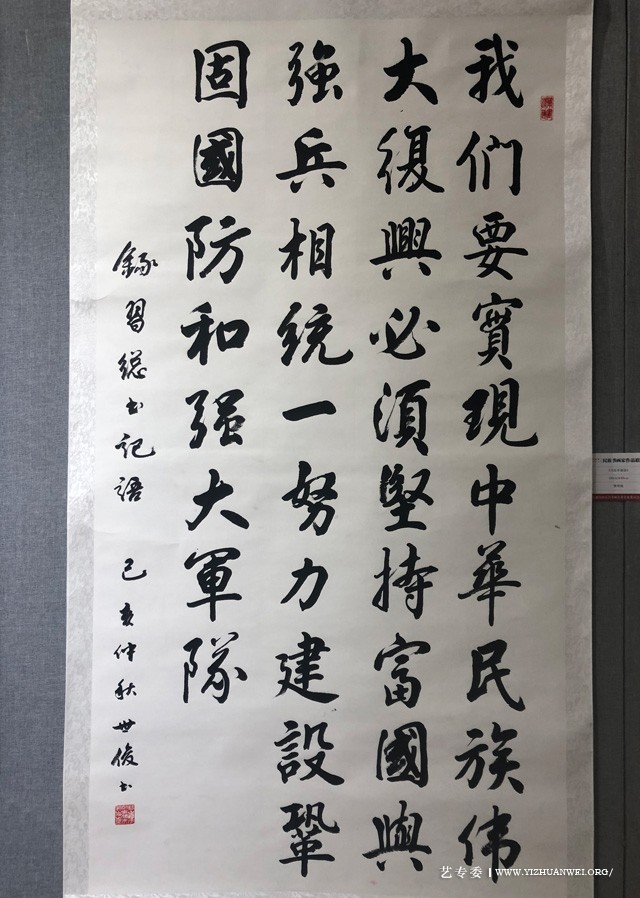 我们要實現中華民族伟
大復興必須堅持富國與
強兵相统一努力建設鞏
固國防和强大軍隊
録習總书記語 己亥仲秋 世俊书
艺专委 | WWW.YIZHUANWEI.ORG/